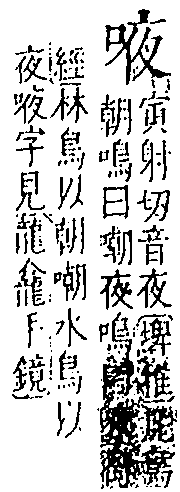 㖡
寅射切音夜埤雅
朝鳴曰嘲夜鳴
經林鳥以朝嘲水鳥以
夜㖡字見龍龕手鏡